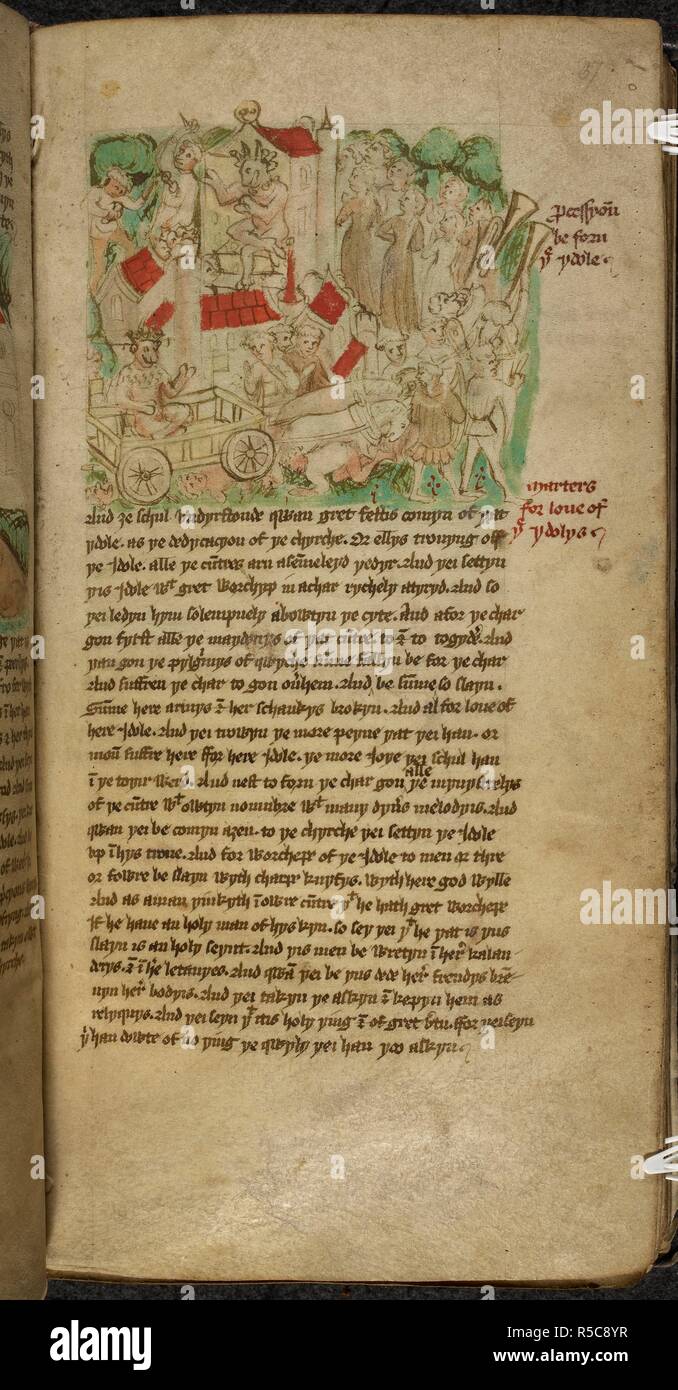 37
processyoun
be forn
yͤ ydole
marters
for loue of
yͤ ydolys
And ȝe schul vndyrstonde qwan gret festis comyn of yat
ydole. as ye dedycacyon of ye chyrche. Or ellys tronyng off
ye ydole. alle ye cūtres arn asemeleyd yedyr. And yei settyn
yis ydole wt gret worchyp in achar rychely atyryd. And so
yei ledyn hym solempnely abowtyn ye cyte. And afor ye char
gon fyrst alle ye maydenys of yat cūtre. to & to togydr. And
yan gon ye pylgrymys of qwyche sūme fallyn be for ye char
And suffren ye char to gon ou'hem. And be sūme so slayn.
Sūme here armys & her schankys brokyn. And al for loue of
here ydole. And yei trowyn ye more peyne yat yei han. or
mow suffre here ffor here ydole. ye more joye yei schul han
ī ye toyir werd. And nest to forn ye char gon alle ye mynystrelys
of ye cūtre wt owtyn nowmbre wt many dyu's melodyis. And
qwan yei be comyn aȝen. to ye chyrche yei settyn ye ydole
vp ī hys trone. And for worchepe of ye ydole to men or thre
or fowre be slayn wyth charpe knyfys. wyth here god wylle
And as aman yinkyth ī owre cūtre yt he hath gret worchepe
If he haue an holy man of hys kyn. so sey yei yt he yat is yus
slayn is an holy seynt. And yis men be wretyn ī her kalan
derys. & ī he letanyes. And qwā yei be yus dede her frendys bre
nyn her bodyis. And yei takyn ye askyn & kepyn hem as
relyquys. And yei seyn yt itis holy ying & of gret vtu. ffor yei seyn
yt han dowte of no ying ye qwyly yei han yoo askyn
alamy
a
alamy
a
a
a
alamy
a
a
alamy
Image ID: R5C8YR
www.alamy.com